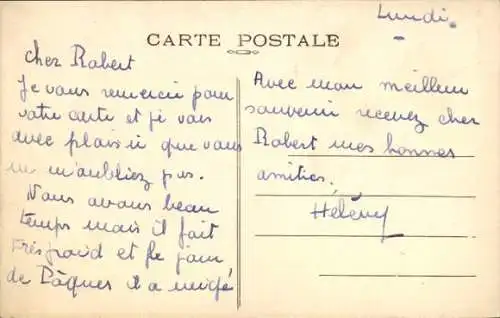 Lundi.
CARTE POSTALE
cher Robert
Je vous remercie pour
votre carte et je vois
avec plaisir que vous
ne m'oubliez pas.
Nous avons beau
temps mais il fait
très froid et le jour
de Pâques il a neigé
Avec mon meilleur
souvenir recevez cher
Robert mes bonnes
amitiés.